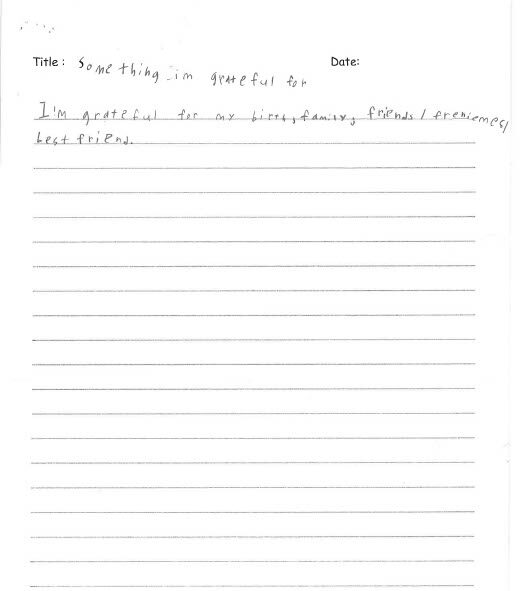 Title: Something im grateful for Date:
I'm grateful for my birth, family, friends/freniemes/
best friend.